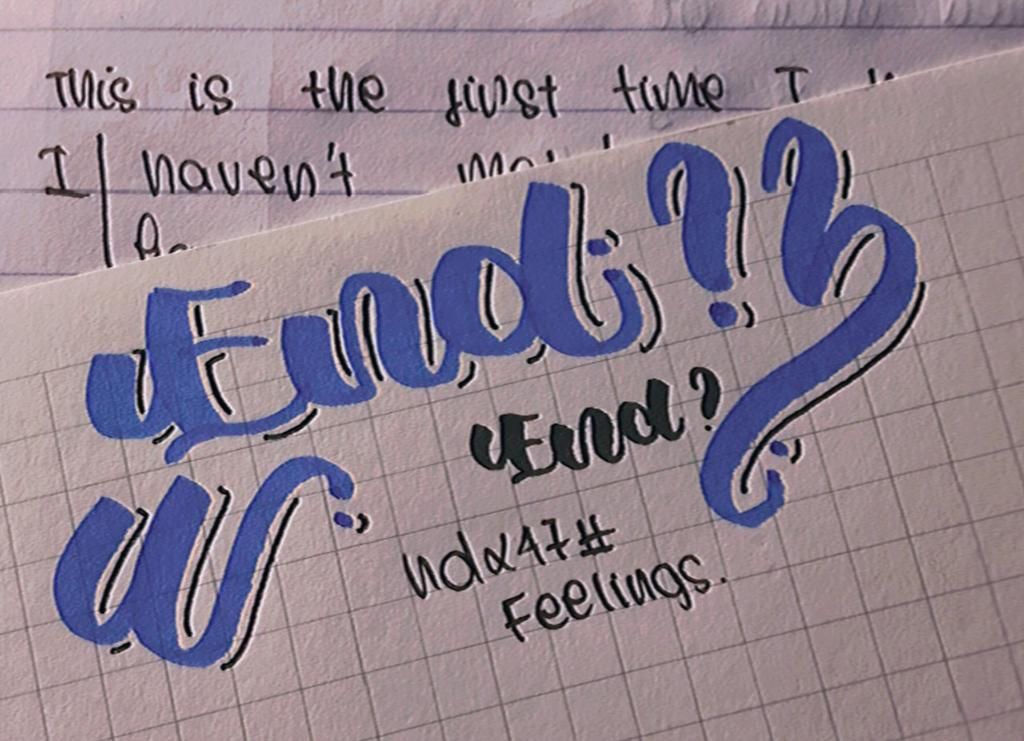 This is the first time I
I haven't
End??
End?
ndα47#
Feelings.